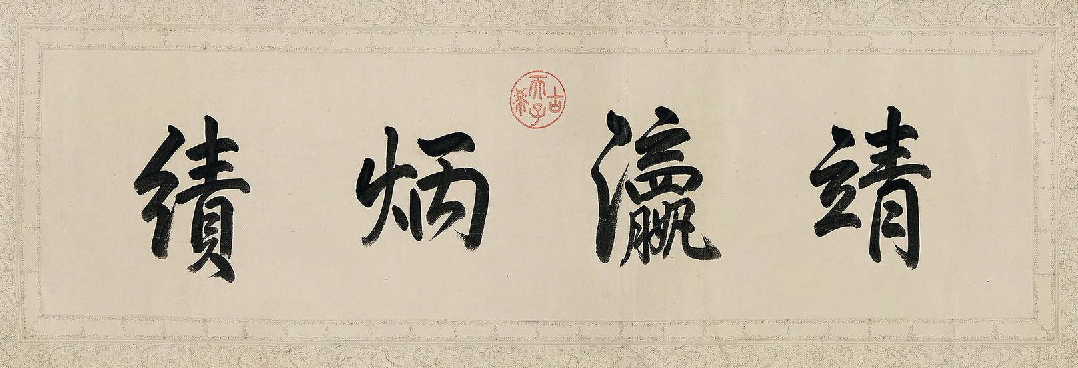 靖瀛炳績
古希天子